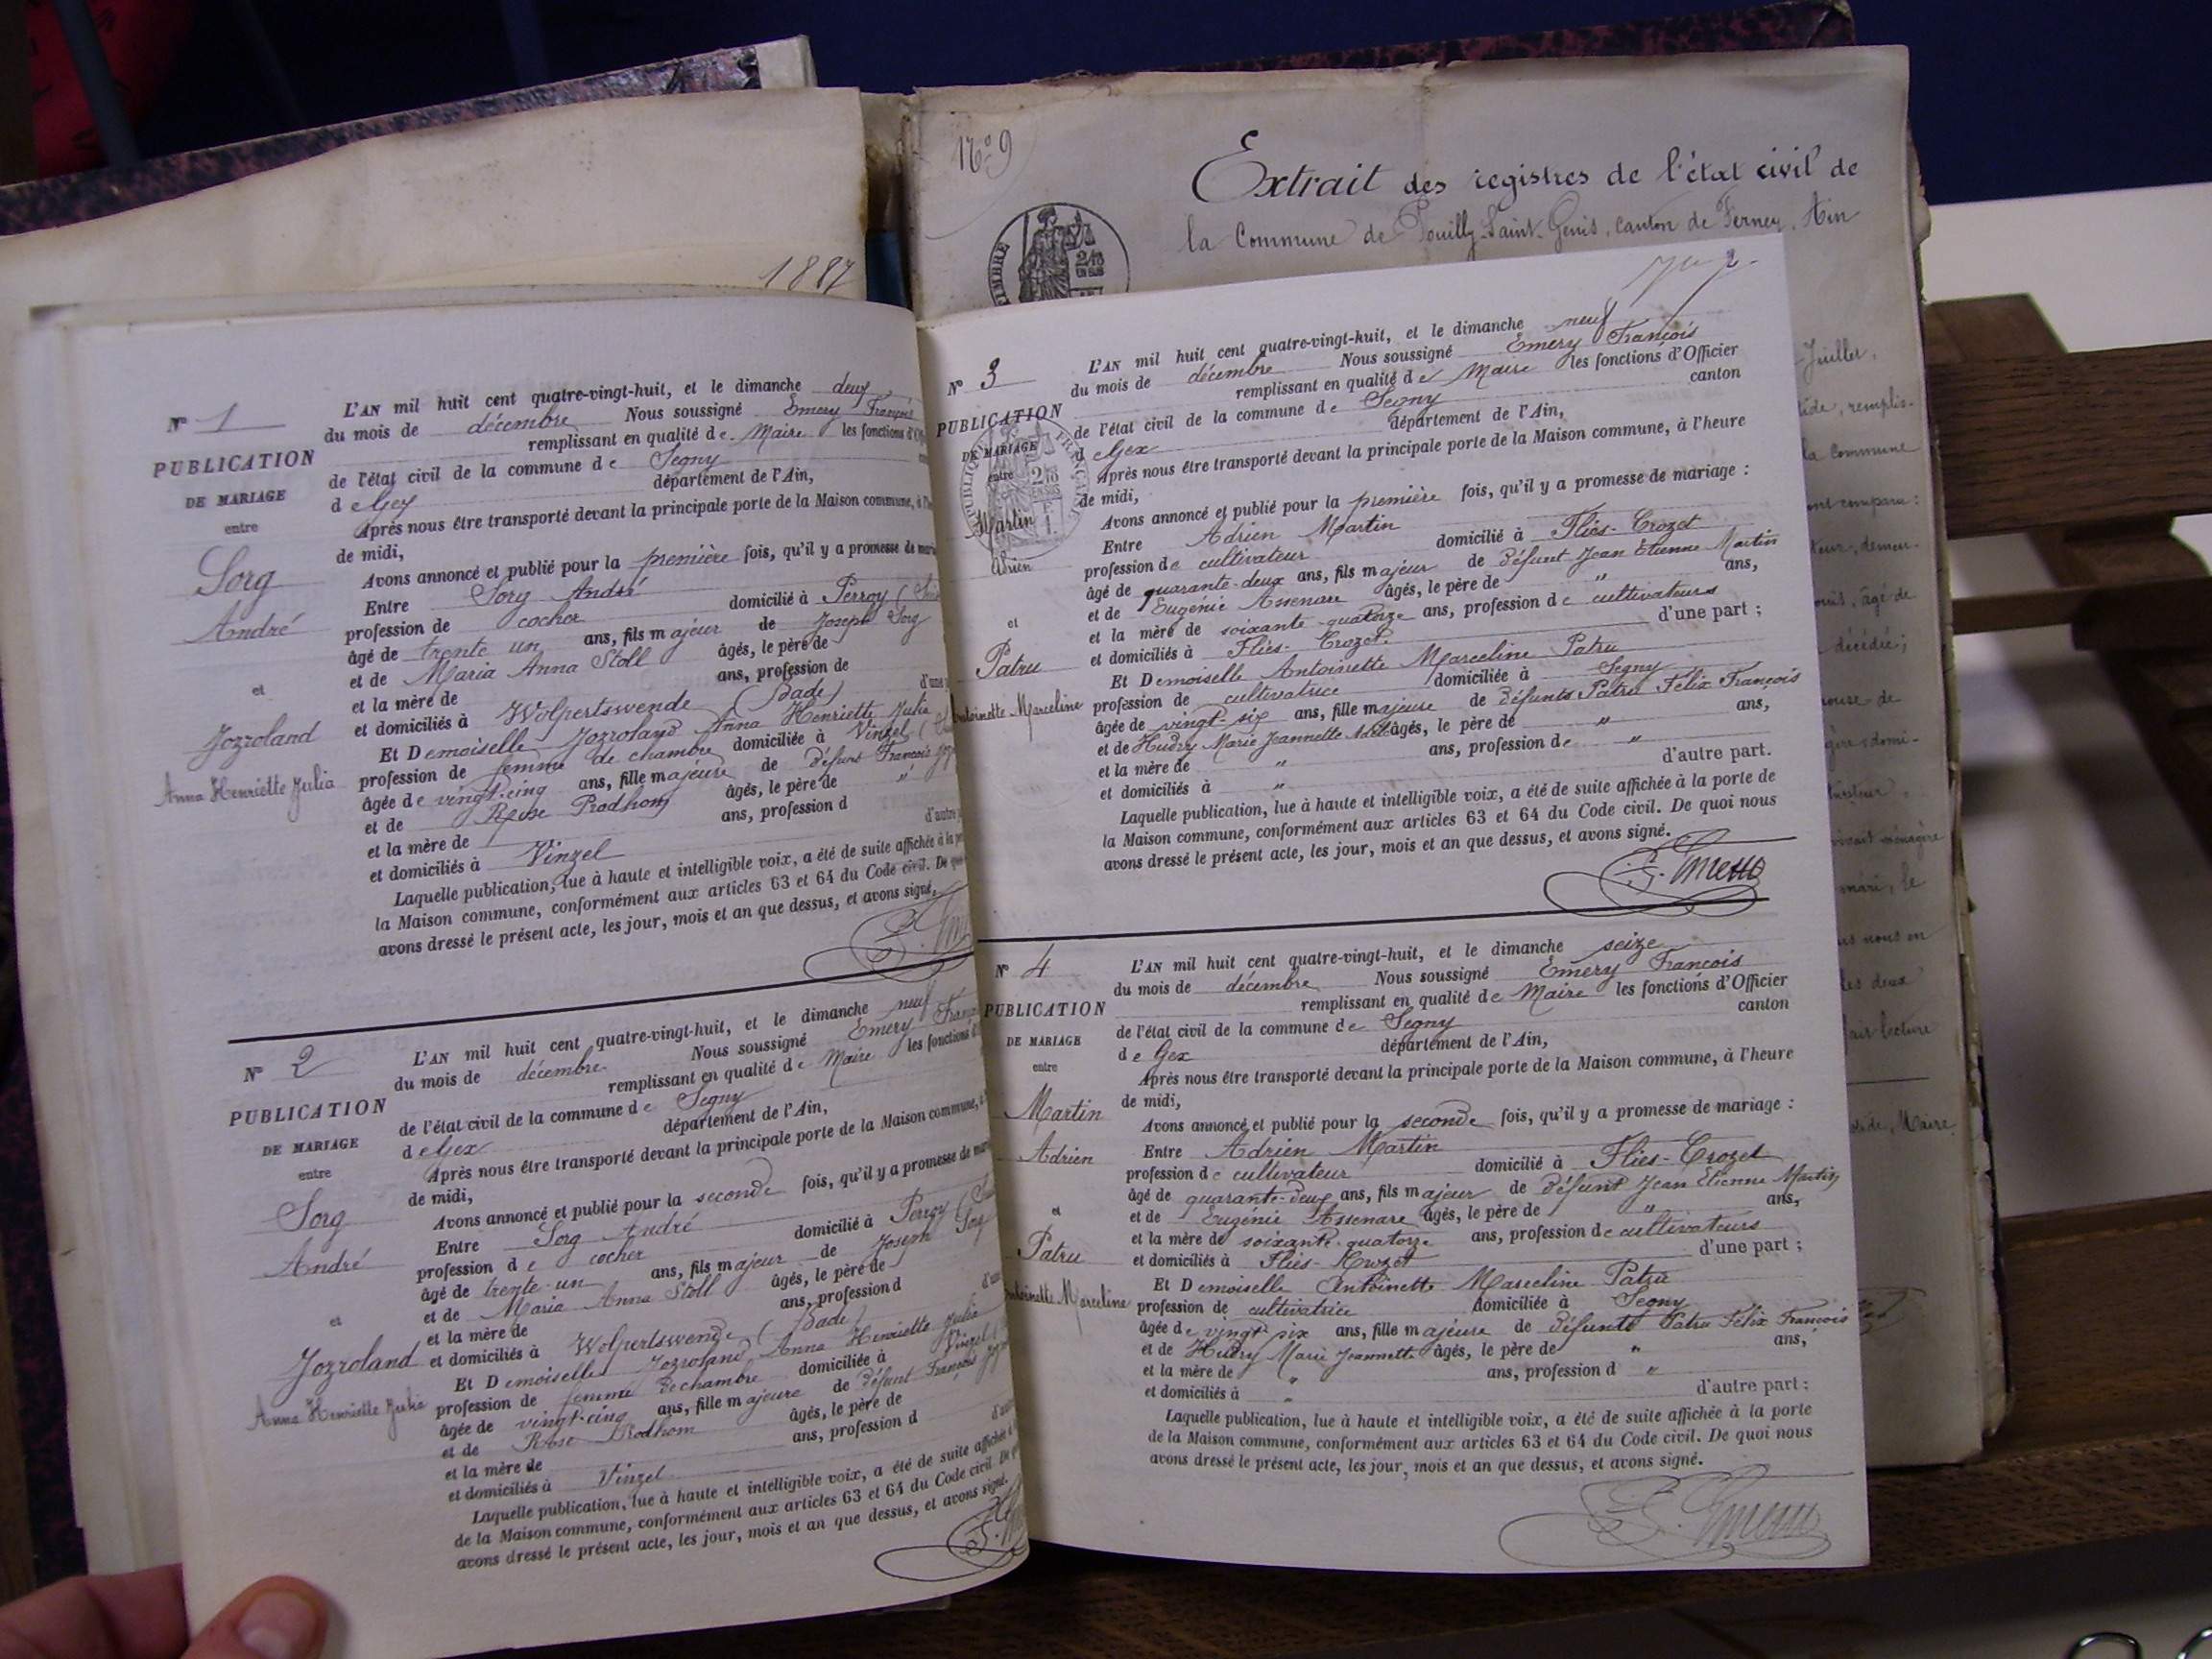 1887
Nº 1
PUBLICATION
DE MARIAGE
entre
Sorg
André
et
Jozroland
Anna Henriette Julia
L'AN mil huit cent quatre-vingt-huit, et le dimanche deux
du mois de décembre Nous soussigné Emery François
remplissant en qualité de Maire les fonctions
de l'état civil de la commune de Segny
de Gex département de l'Ain,
Après nous être transporté devant la principale porte de la Maison commune,
de midi,
Avons annoncé et publié pour la première fois, qu'il y a promesse de
Entre Sorg André
profession de cocher domicilié à Perroy
âgé de trente un ans, fils majeur de Joseph Sorg
et de Maria Anna Stoll âgés, le père de
et la mère de ans, profession de
et domiciliés à Wolpertswende (Bade)
Et Demoiselle Jozroland Anna Henriette Julia
profession de femme de chambre domiciliée à Vinzel
âgée de vingt-cinq ans, fille majeure de défunt François
et de Rose Prodhom âgés, le père de "
et la mère de ans, profession d
et domiciliés à Vinzel
Laquelle publication, lue à haute et intelligible voix, a été de suite affichée à la
la Maison commune, conformément aux articles 63 et 64 du Code civil. De
avons dressé le présent acte, les jour, mois et an que dessus, et avons signé.
Nº 2
PUBLICATION
DE MARIAGE
entre
Sorg
André
et
Jozroland
Anna Henriette Julia
L'AN mil huit cent quatre-vingt-huit, et le dimanche neuf
du mois de décembre Nous soussigné Emery
remplissant en qualité de Maire les fonctions
de l'état civil de la commune de Segny
de Gex département de l'Ain,
Après nous être transporté devant la principale porte de la Maison commune,
de midi,
Avons annoncé et publié pour la seconde fois, qu'il y a promesse de
Entre Sorg André
profession de cocher domicilié à Perroy
âgé de trente-un ans, fils majeur de Joseph
et de Maria Anna Stoll âgés, le père de
et la mère de ans, profession d
et domiciliés à Wolpertswende (Bade)
Et Demoiselle Jozroland Anna Henriette Julia
profession de femme de chambre domiciliée à Vinzel
âgée de vingt-cinq ans, fille majeure de défunt François
et de Rose Prodhom âgés, le père de
et la mère de ans, profession d
et domiciliés à Vinzel
Laquelle publication, lue à haute et intelligible voix, a été de suite affichée
de la Maison commune, conformément aux articles 63 et 64 du Code civil.
avons dressé le présent acte, les jour, mois et an que dessus, et avons signé.
Nº 9
Extrait des registres de l'état civil de
la Commune de Pouilly-Saint-Genis, canton de Ferney, Ain
TIMBRE
Nº 3
PUBLICATION
DE MARIAGE
entre
Martin
Adrien
et
Patru
Antoinette Marceline
L'AN mil huit cent quatre-vingt-huit, et le dimanche neuf
du mois de décembre Nous soussigné Emery François
remplissant en qualité de Maire les fonctions d'Officier
de l'état civil de la commune de Segny canton
de Gex département de l'Ain,
Après nous être transporté devant la principale porte de la Maison commune, à l'heure
de midi,
Avons annoncé et publié pour la première fois, qu'il y a promesse de mariage :
Entre Adrien Martin
profession de cultivateur domicilié à Fliès-Crozet
âgé de quarante-deux ans, fils majeur de défunt Jean Etienne Martin
et de Eugénie Assenare âgés, le père de " ans,
et la mère de soixante-quatorze ans, profession de cultivateurs
et domiciliés à Fliès-Crozet. d'une part ;
Et Demoiselle Antoinette Marceline Patru
profession de cultivatrice domiciliée à Segny
âgée de vingt-six ans, fille majeure de défunts Patru Félix François
et de Hudry Marie Jeannette âgés, le père de " ans,
et la mère de " ans, profession de "
et domiciliés à " d'autre part.
Laquelle publication, lue à haute et intelligible voix, a été de suite affichée à la porte de
la Maison commune, conformément aux articles 63 et 64 du Code civil. De quoi nous
avons dressé le présent acte, les jour, mois et an que dessus, et avons signé.
F. Emery
Nº 4
PUBLICATION
DE MARIAGE
entre
Martin
Adrien
et
Patru
Antoinette Marceline
L'AN mil huit cent quatre-vingt-huit, et le dimanche seize
du mois de décembre Nous soussigné Emery François
remplissant en qualité de Maire les fonctions d'Officier
de l'état civil de la commune de Segny canton
de Gex département de l'Ain,
Après nous être transporté devant la principale porte de la Maison commune, à l'heure
de midi,
Avons annoncé et publié pour la seconde fois, qu'il y a promesse de mariage :
Entre Adrien Martin
profession de cultivateur domicilié à Fliès-Crozet
âgé de quarante-deux ans, fils majeur de défunt Jean Etienne Martin
et de Eugénie Assenare âgés, le père de " ans,
et la mère de soixante-quatorze ans, profession de cultivateurs
et domiciliés à Fliès-Crozet d'une part ;
Et Demoiselle Antoinette Marceline Patru
profession de cultivatrice domiciliée à Segny
âgée de vingt six ans, fille majeure de défunts Patru Félix François
et de Hudry Marie Jeannette âgés, le père de " ans,
et la mère de " ans, profession d "
et domiciliés à " d'autre part ;
Laquelle publication, lue à haute et intelligible voix, a été de suite affichée à la porte
de la Maison commune, conformément aux articles 63 et 64 du Code civil. De quoi nous
avons dressé le présent acte, les jour, mois et an que dessus, et avons signé.
F. Emery
Juillet,
remplis-
la Commune
ont comparu :
demeu-
âgé de
décédée ;
épouse de
domi-
ménagère
mari, le
nous en
les deux
lecture
Maire